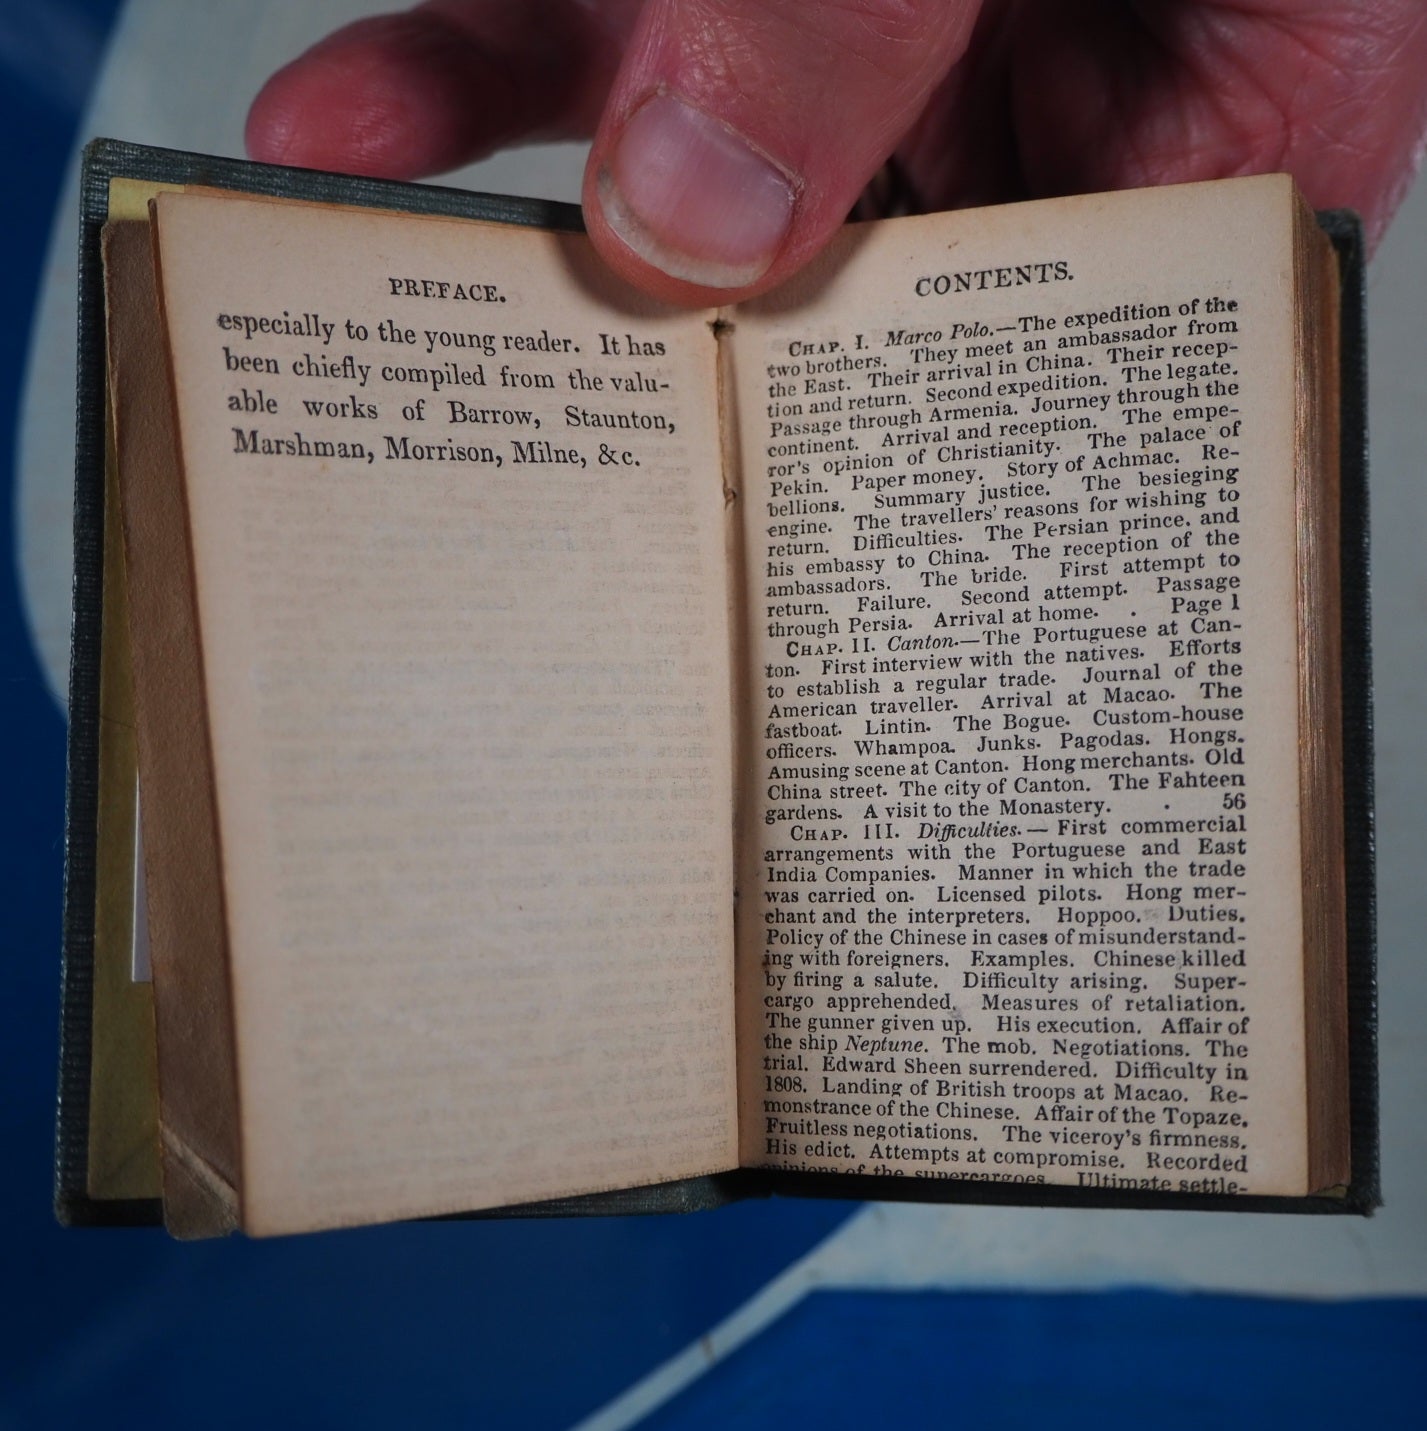 PREFACE.
especially to the young reader. It has
been chiefly compiled from the valu-
able works of Barrow, Staunton,
Marshman, Morrison, Milne, &c.
CONTENTS.
CHAP. I. Marco Polo.—The expedition of the
two brothers. They meet an ambassador from
the East. Their arrival in China. Their recep-
tion and return. Second expedition. The legate.
Passage through Armenia. Journey through the
continent. Arrival and reception. The empe-
ror's opinion of Christianity. The palace of
Pekin. Paper money. Story of Achmac. Re-
bellions. Summary justice. The besieging
engine. The travellers' reasons for wishing to
return. Difficulties. The Persian prince. and
his embassy to China. The reception of the
ambassadors. The bride. First attempt to
return. Failure. Second attempt. Passage
through Persia. Arrival at home. . Page 1
CHAP. II. Canton.—The Portuguese at Can-
ton. First interview with the natives. Efforts
to establish a regular trade. Journal of the
American traveller. Arrival at Macao. The
fastboat. Lintin. The Bogue. Custom-house
officers. Whampoa. Junks. Pagodas. Hongs.
Amusing scene at Canton. Hong merchants. Old
China street. The city of Canton. The Fahteen
gardens. A visit to the Monastery. . 56
CHAP. III. Difficulties.— First commercial
arrangements with the Portuguese and East
India Companies. Manner in which the trade
was carried on. Licensed pilots. Hong mer-
chant and the interpreters. Hoppoo. Duties.
Policy of the Chinese in cases of misunderstand-
ing with foreigners. Examples. Chinese killed
by firing a salute. Difficulty arising. Super-
cargo apprehended. Measures of retaliation.
The gunner given up. His execution. Affair of
the ship Neptune. The mob. Negotiations. The
trial. Edward Sheen surrendered. Difficulty in
1808. Landing of British troops at Macao. Re-
monstrance of the Chinese. Affair of the Topaze.
Fruitless negotiations. The viceroy's firmness.
His edict. Attempts at compromise. Recorded
opinions of the supercargoes. Ultimate settle-